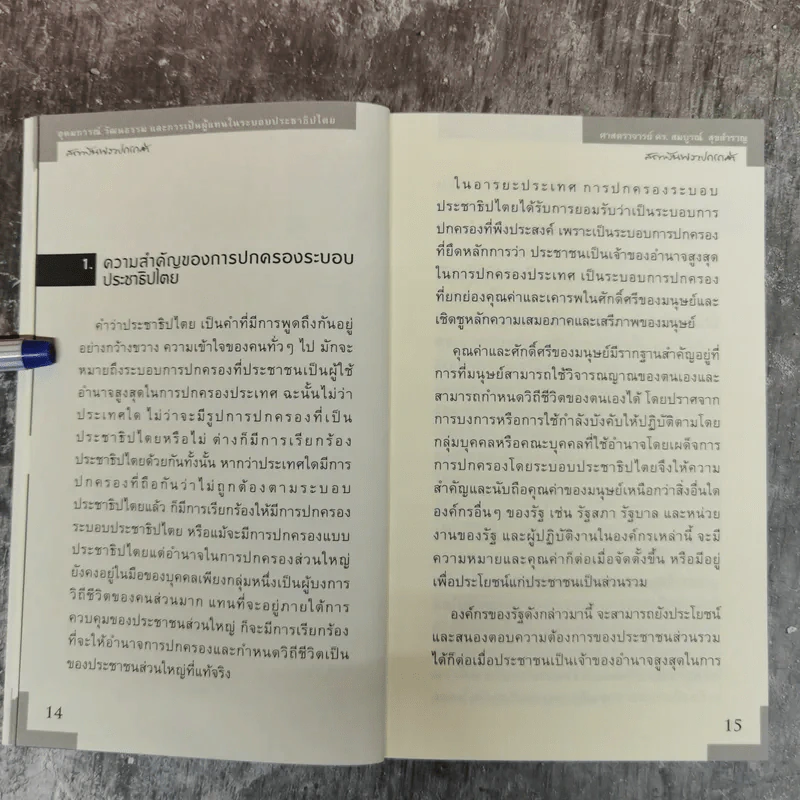 อุดมการณ์ วัฒนธรรม และการเป็นผู้แทนในระบอบประชาธิปไตย
สถาบันพระปกเกล้า
1. ความสำคัญของการปกครองระบอบ
ประชาธิปไตย
คำว่าประชาธิปไตย เป็นคำที่มีการพูดถึงกันอยู่
อย่างกว้างขวาง ความเข้าใจของคนทั่วๆ ไป มักจะ
หมายถึงระบอบการปกครองที่ประชาชนเป็นผู้ใช้
อำนาจสูงสุดในการปกครองประเทศ ฉะนั้นไม่ว่า
ประเทศใด ไม่ว่าจะมีรูปการปกครองที่เป็น
ประชาธิปไตยหรือไม่ ต่างก็มีการเรียกร้อง
ประชาธิปไตยด้วยกันทั้งนั้น หากว่าประเทศใดมีการ
ปกครองที่ถือกันว่าไม่ถูกต้องตามระบอบ
ประชาธิปไตยแล้ว ก็มีการเรียกร้องให้มีการปกครอง
ระบอบประชาธิปไตย หรือแม้จะมีการปกครองแบบ
ประชาธิปไตยแต่อำนาจในการปกครองส่วนใหญ่
ยังคงอยู่ในมือของบุคคลเพียงกลุ่มหนึ่งเป็นผู้บงการ
วิถีชีวิตของคนส่วนมาก แทนที่จะอยู่ภายใต้การ
ควบคุมของประชาชนส่วนใหญ่ ก็จะมีการเรียกร้อง
ที่จะให้อำนาจการปกครองและกำหนดวิถีชีวิตเป็น
ของประชาชนส่วนใหญ่ที่แท้จริง
14
ศาสตราจารย์ ดร. สมบูรณ์ สุขสำราญ
สถาบันพระปกเกล้า
ในอารยะประเทศ การปกครองระบอบ
ประชาธิปไตยได้รับการยอมรับว่าเป็นระบอบการ
ปกครองที่พึงประสงค์ เพราะเป็นระบอบการปกครอง
ที่ยึดหลักการว่า ประชาชนเป็นเจ้าของอำนาจสูงสุด
ในการปกครองประเทศ เป็นระบอบการปกครอง
ที่ยกย่องคุณค่าและเคารพในศักดิ์ศรีของมนุษย์และ
เชิดชูหลักความเสมอภาคและเสรีภาพของมนุษย์
คุณค่าและศักดิ์ศรีของมนุษย์มีรากฐานสำคัญอยู่ที่
การที่มนุษย์สามารถใช้วิจารณญาณของตนเองและ
สามารถกำหนดวิถีชีวิตของตนเองได้ โดยปราศจาก
การบงการหรือการใช้กำลังบังคับให้ปฏิบัติตามโดย
กลุ่มบุคคลหรือคณะบุคคลที่ใช้อำนาจโดยเผด็จการ
การปกครองโดยระบอบประชาธิปไตยจึงให้ความ
สำคัญและนับถือคุณค่าของมนุษย์เหนือกว่าสิ่งอื่นใด
องค์กรอื่นๆ ของรัฐ เช่น รัฐสภา รัฐบาล และหน่วย
งานของรัฐ และผู้ปฏิบัติงานในองค์กรเหล่านี้ จะมี
ความหมายและคุณค่าก็ต่อเมื่อจัดตั้งขึ้น หรือมีอยู่
เพื่อประโยชน์แก่ประชาชนเป็นส่วนรวม
องค์กรของรัฐดังกล่าวมานี้ จะสามารถยังประโยชน์
และสนองตอบความต้องการของประชาชนส่วนรวม
ได้ก็ต่อเมื่อประชาชนเป็นเจ้าของอำนาจสูงสุดในการ
15